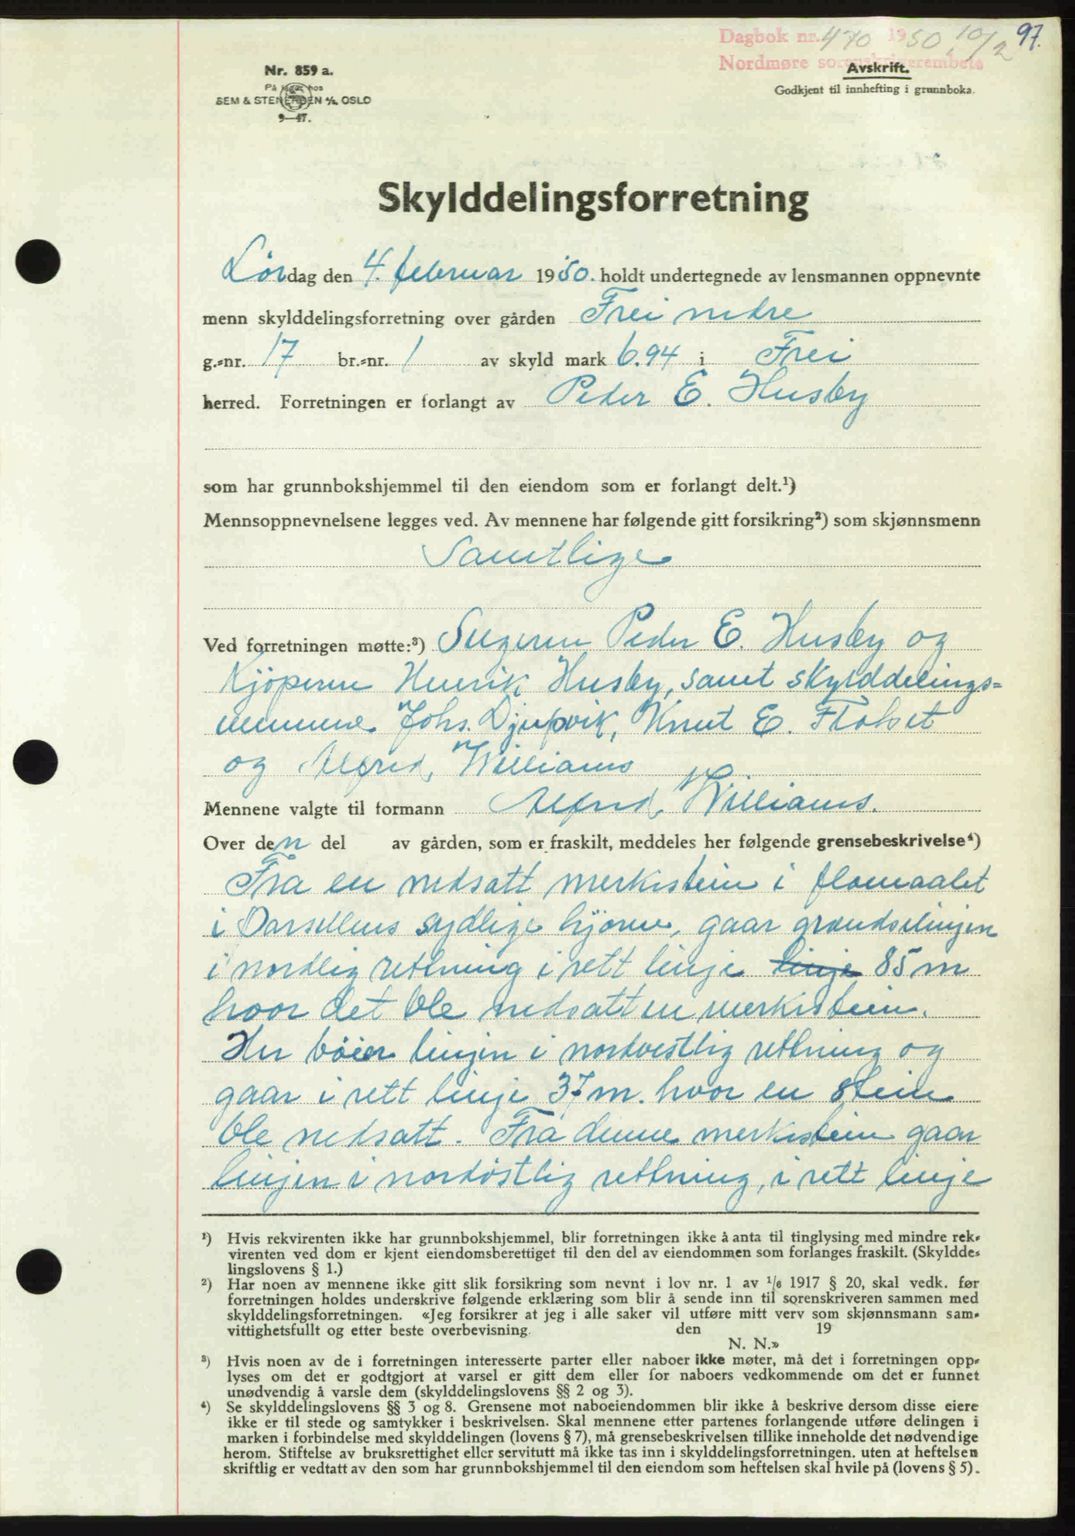 Dagbok nr. 470 1950 10/2 97.
Nordmøre sorenskriverembete
Nr. 859 a.
Avskrift.
På lager hos
SEM & STENERSEN A/S, OSLO
Godkjent til innhefting i grunnboka.
9—47.
Skylddelingsforretning
Lørdag den 4. februar 1950. holdt undertegnede av lensmannen oppnevnte
menn skylddelingsforretning over gården Frei nedre
g.-nr. 17 br.-nr. 1 av skyld mark 6.94 i Frei
herred. Forretningen er forlangt av Peder E. Husby
som har grunnbokshjemmel til den eiendom som er forlangt delt.¹)
Mennsoppnevnelsene legges ved. Av mennene har følgende gitt forsikring²) som skjønnsmenn
Samtlige
Ved forretningen møtte:³) Selgeren Peder E. Husby og
Kjöperen Henrik Husby, samt skylddelings-
mennene Johs. Djupvik, Knut E. Flatset
og Alfred Williams
Mennene valgte til formann Alfred Williams.
Over den del av gården, som er fraskilt, meddeles her følgende grensebeskrivelse⁴)
Fra en nedsatt merkestein i flomaalet
i Parsellens sydlige hjörne, gaar grændselinjen
i nordlig retning i rett linje linje 85 m
hvor det ble nedsatt en merkestein.
Her böier linjen i nordvestlig retning og
gaar i rett linje 37 m. hvor en stein
ble nedsatt. Fra denne merkestein gaar
linjen i nordöstlig retning, i rett linje
¹) Hvis rekvirenten ikke har grunnbokshjemmel, blir forretningen ikke å anta til tinglysing med mindre rek-
virenten ved dom er kjent eiendomsberettiget til den del av eiendommen som forlanges fraskilt. (Skyldde-
lingslovens § 1.)
²) Har noen av mennene ikke gitt slik forsikring som nevnt i lov nr. 1 av 1/6 1917 § 20, skal vedk. før
forretningen holdes underskrive følgende erklæring som blir å sende inn til sorenskriveren sammen med
skylddelingsforretningen. «Jeg forsikrer at jeg i alle saker vil utføre mitt verv som skjønnsmann sam-
vittighetsfullt og etter beste overbevisning. den 19
N. N.»
³) Hvis noen av de i forretningen interesserte parter eller naboer ikke møter, må det i forretningen opp-
lyses om det er godtgjort at varsel er gitt dem eller for naboers vedkommende om det er funnet
unødvendig å varsle dem (skylddelingslovens §§ 2 og 3).
⁴) Se skylddelingslovens §§ 3 og 8. Grensene mot naboeiendommen blir ikke å beskrive dersom disse eiere
ikke er til stede og samtykker i beskrivelsen. Skal mennene etter partenes forlangende utføre delingen i
marken i forbindelse med skylddelingen (lovens § 7), må grensebeskrivelsen tillike inneholde det nødvendige
herom. Stiftelse av bruksrettighet eller servitutt må ikke tas inn i skylddelingsforretningen, uten at heftelsen
skriftlig er vedtatt av den som har grunnbokshjemmel til den eiendom som heftelsen skal hvile på (lovens § 5).